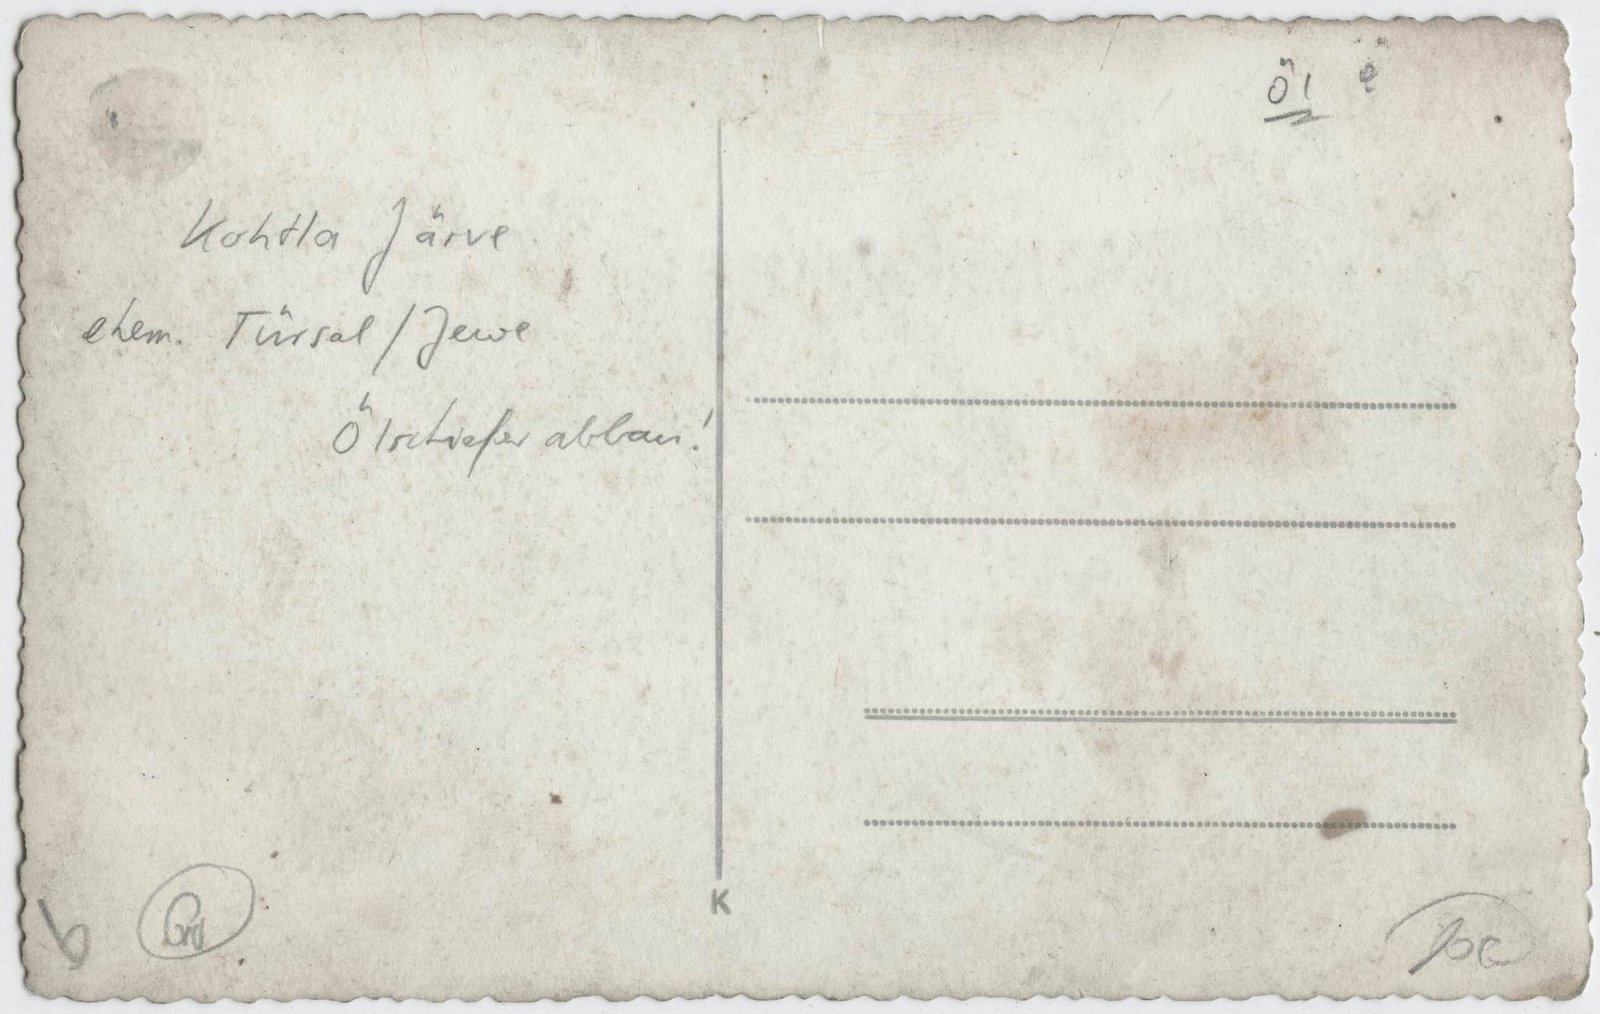 Öl
Kohtla Järve
ehem. Türsal/Jewe
Ölschieferabbau!
K
b